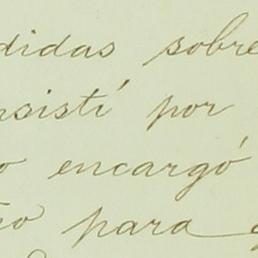 didas sobre
nsistí por
o encargó
para